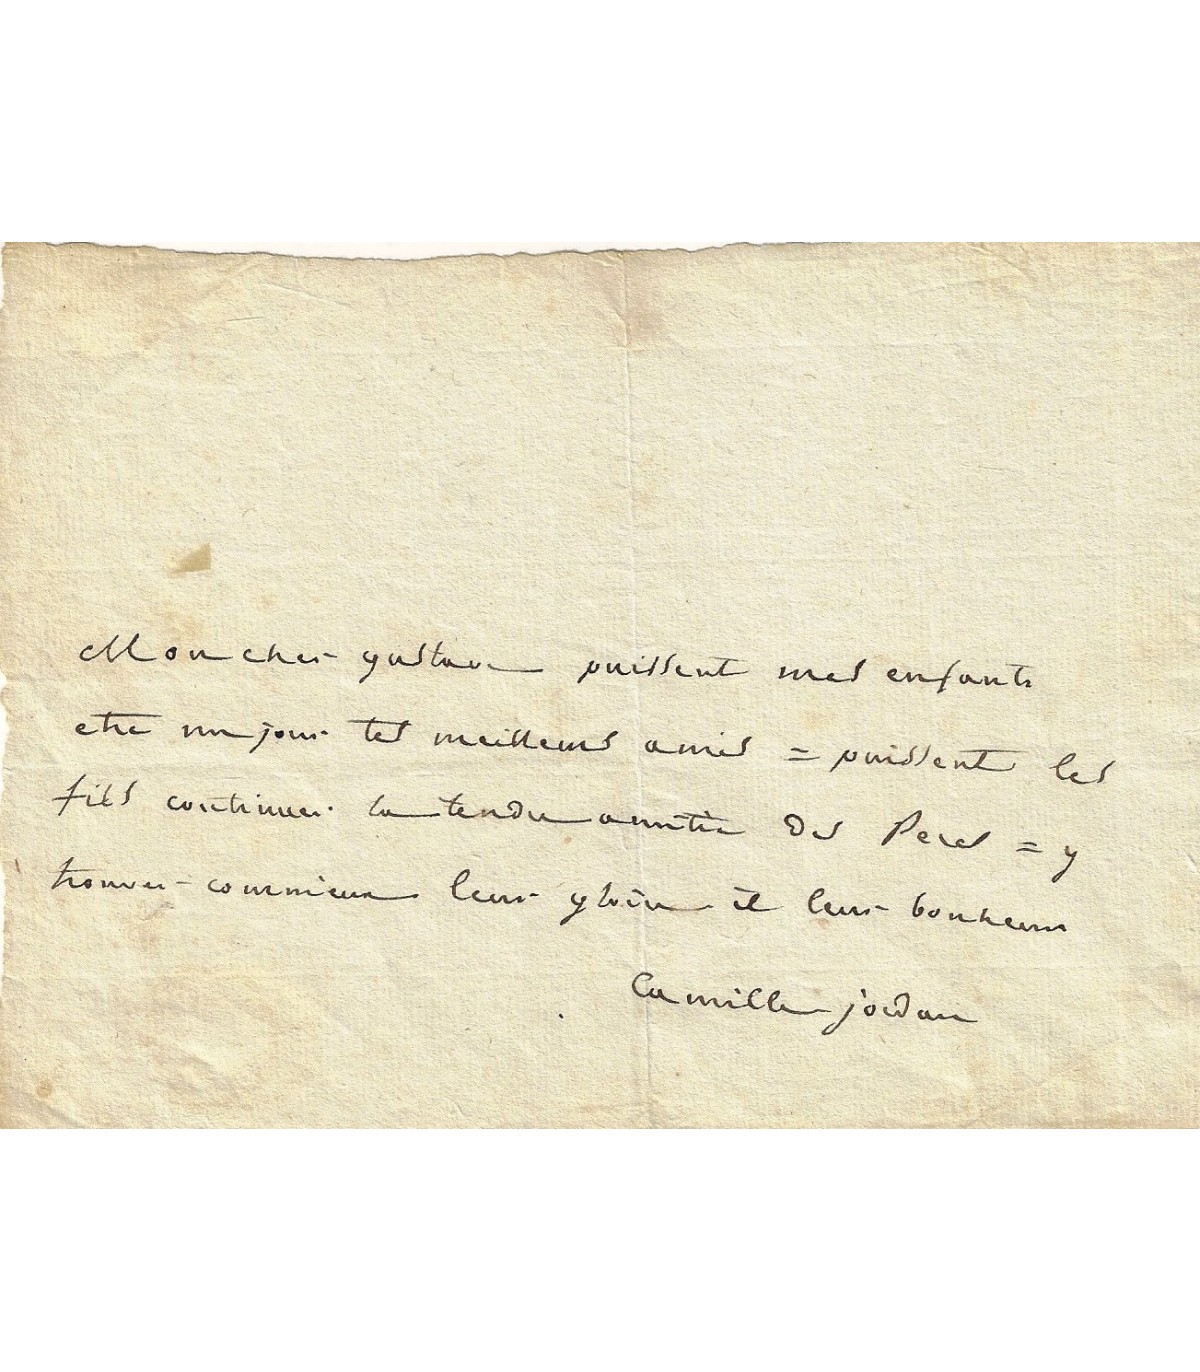 Mon cher gustave puissent mes enfants
etre un jour tes meilleurs amis = puissent les
fils continuer la tendre amitié des Peres = y
trouver comme eux leur gloire et leur bonheur
Camille jordan